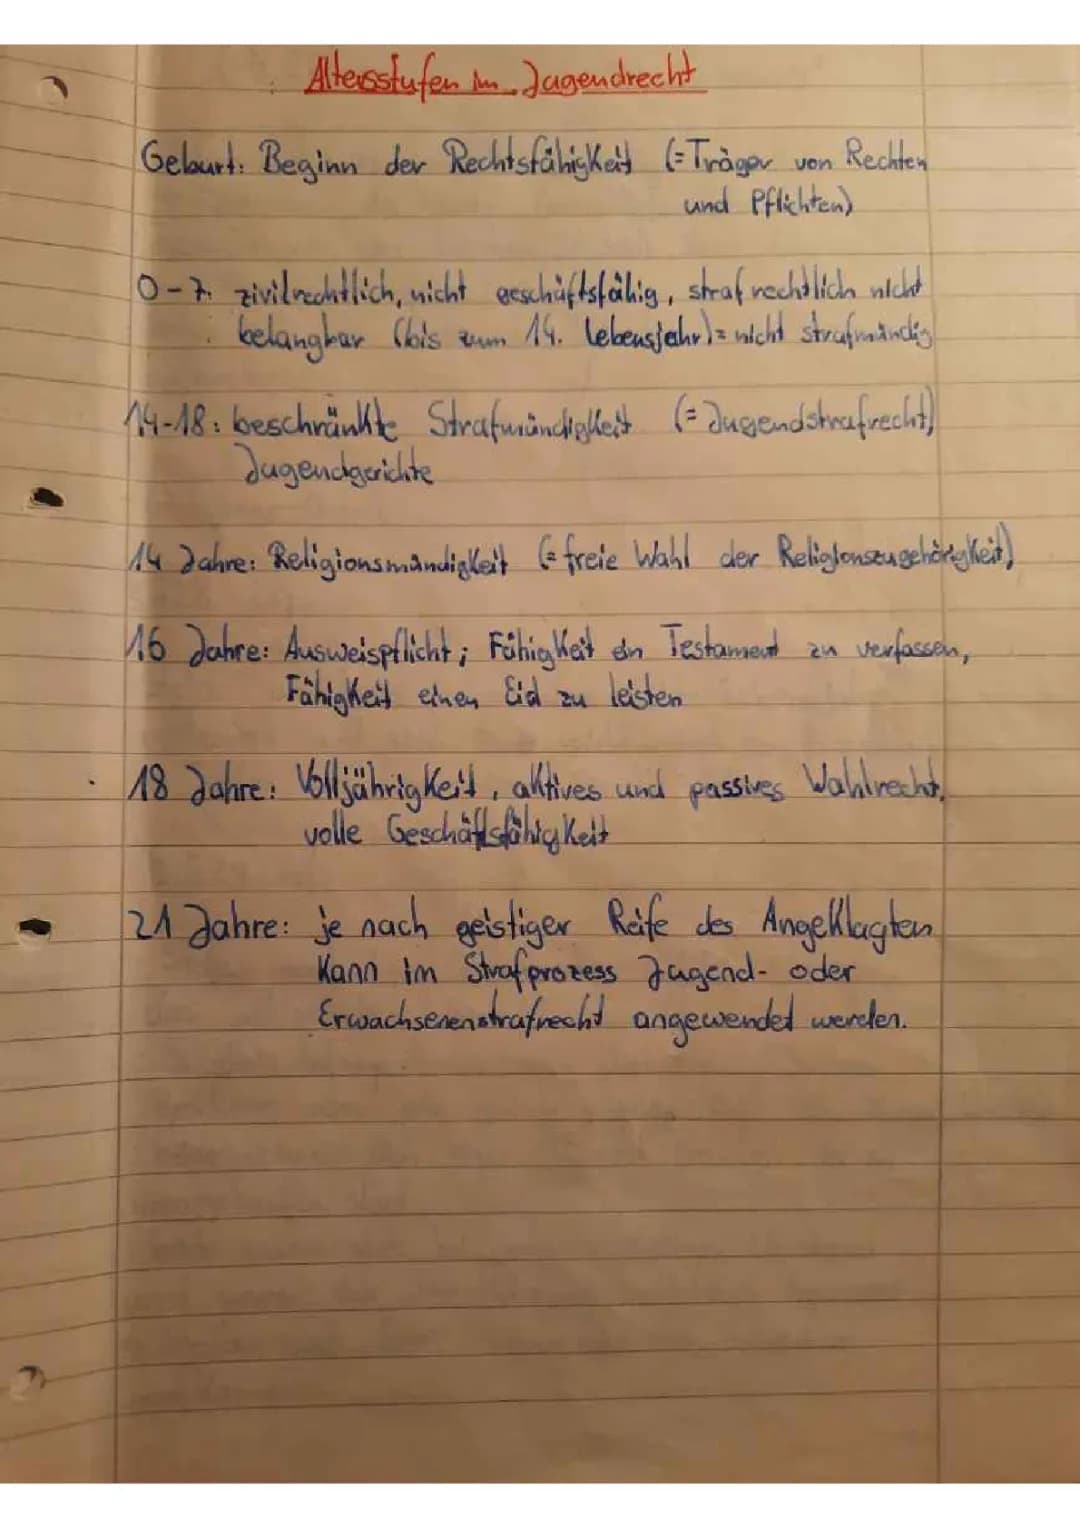 Altersstufen im Jugendrecht
Geburt: Beginn der Rechtsfähigkeit (=Träger von Rechten
und Pflichten)
0-7: zivilrechtlich, nicht geschäftsfähig, strafrechtlich nicht
belangbar (bis zum 14. Lebensjahr)= nicht strafmündig
14-18: beschränkte Strafmündigkeit (= Jugendstrafrecht)
Jugendgerichte
14 Jahre: Religionsmündigkeit (= freie Wahl der Religionszugehörigkeit)
16 Jahre: Ausweispflicht; Fähigkeit ein Testament zu verfassen,
Fähigkeit einen Eid zu leisten
18 Jahre: Volljährigkeit, aktives und passives Wahlrecht,
volle Geschäftsfähigkeit
21 Jahre: je nach geistiger Reife des Angeklagten
kann im Strafprozess Jugend- oder
Erwachsenenstrafrecht angewendet werden.